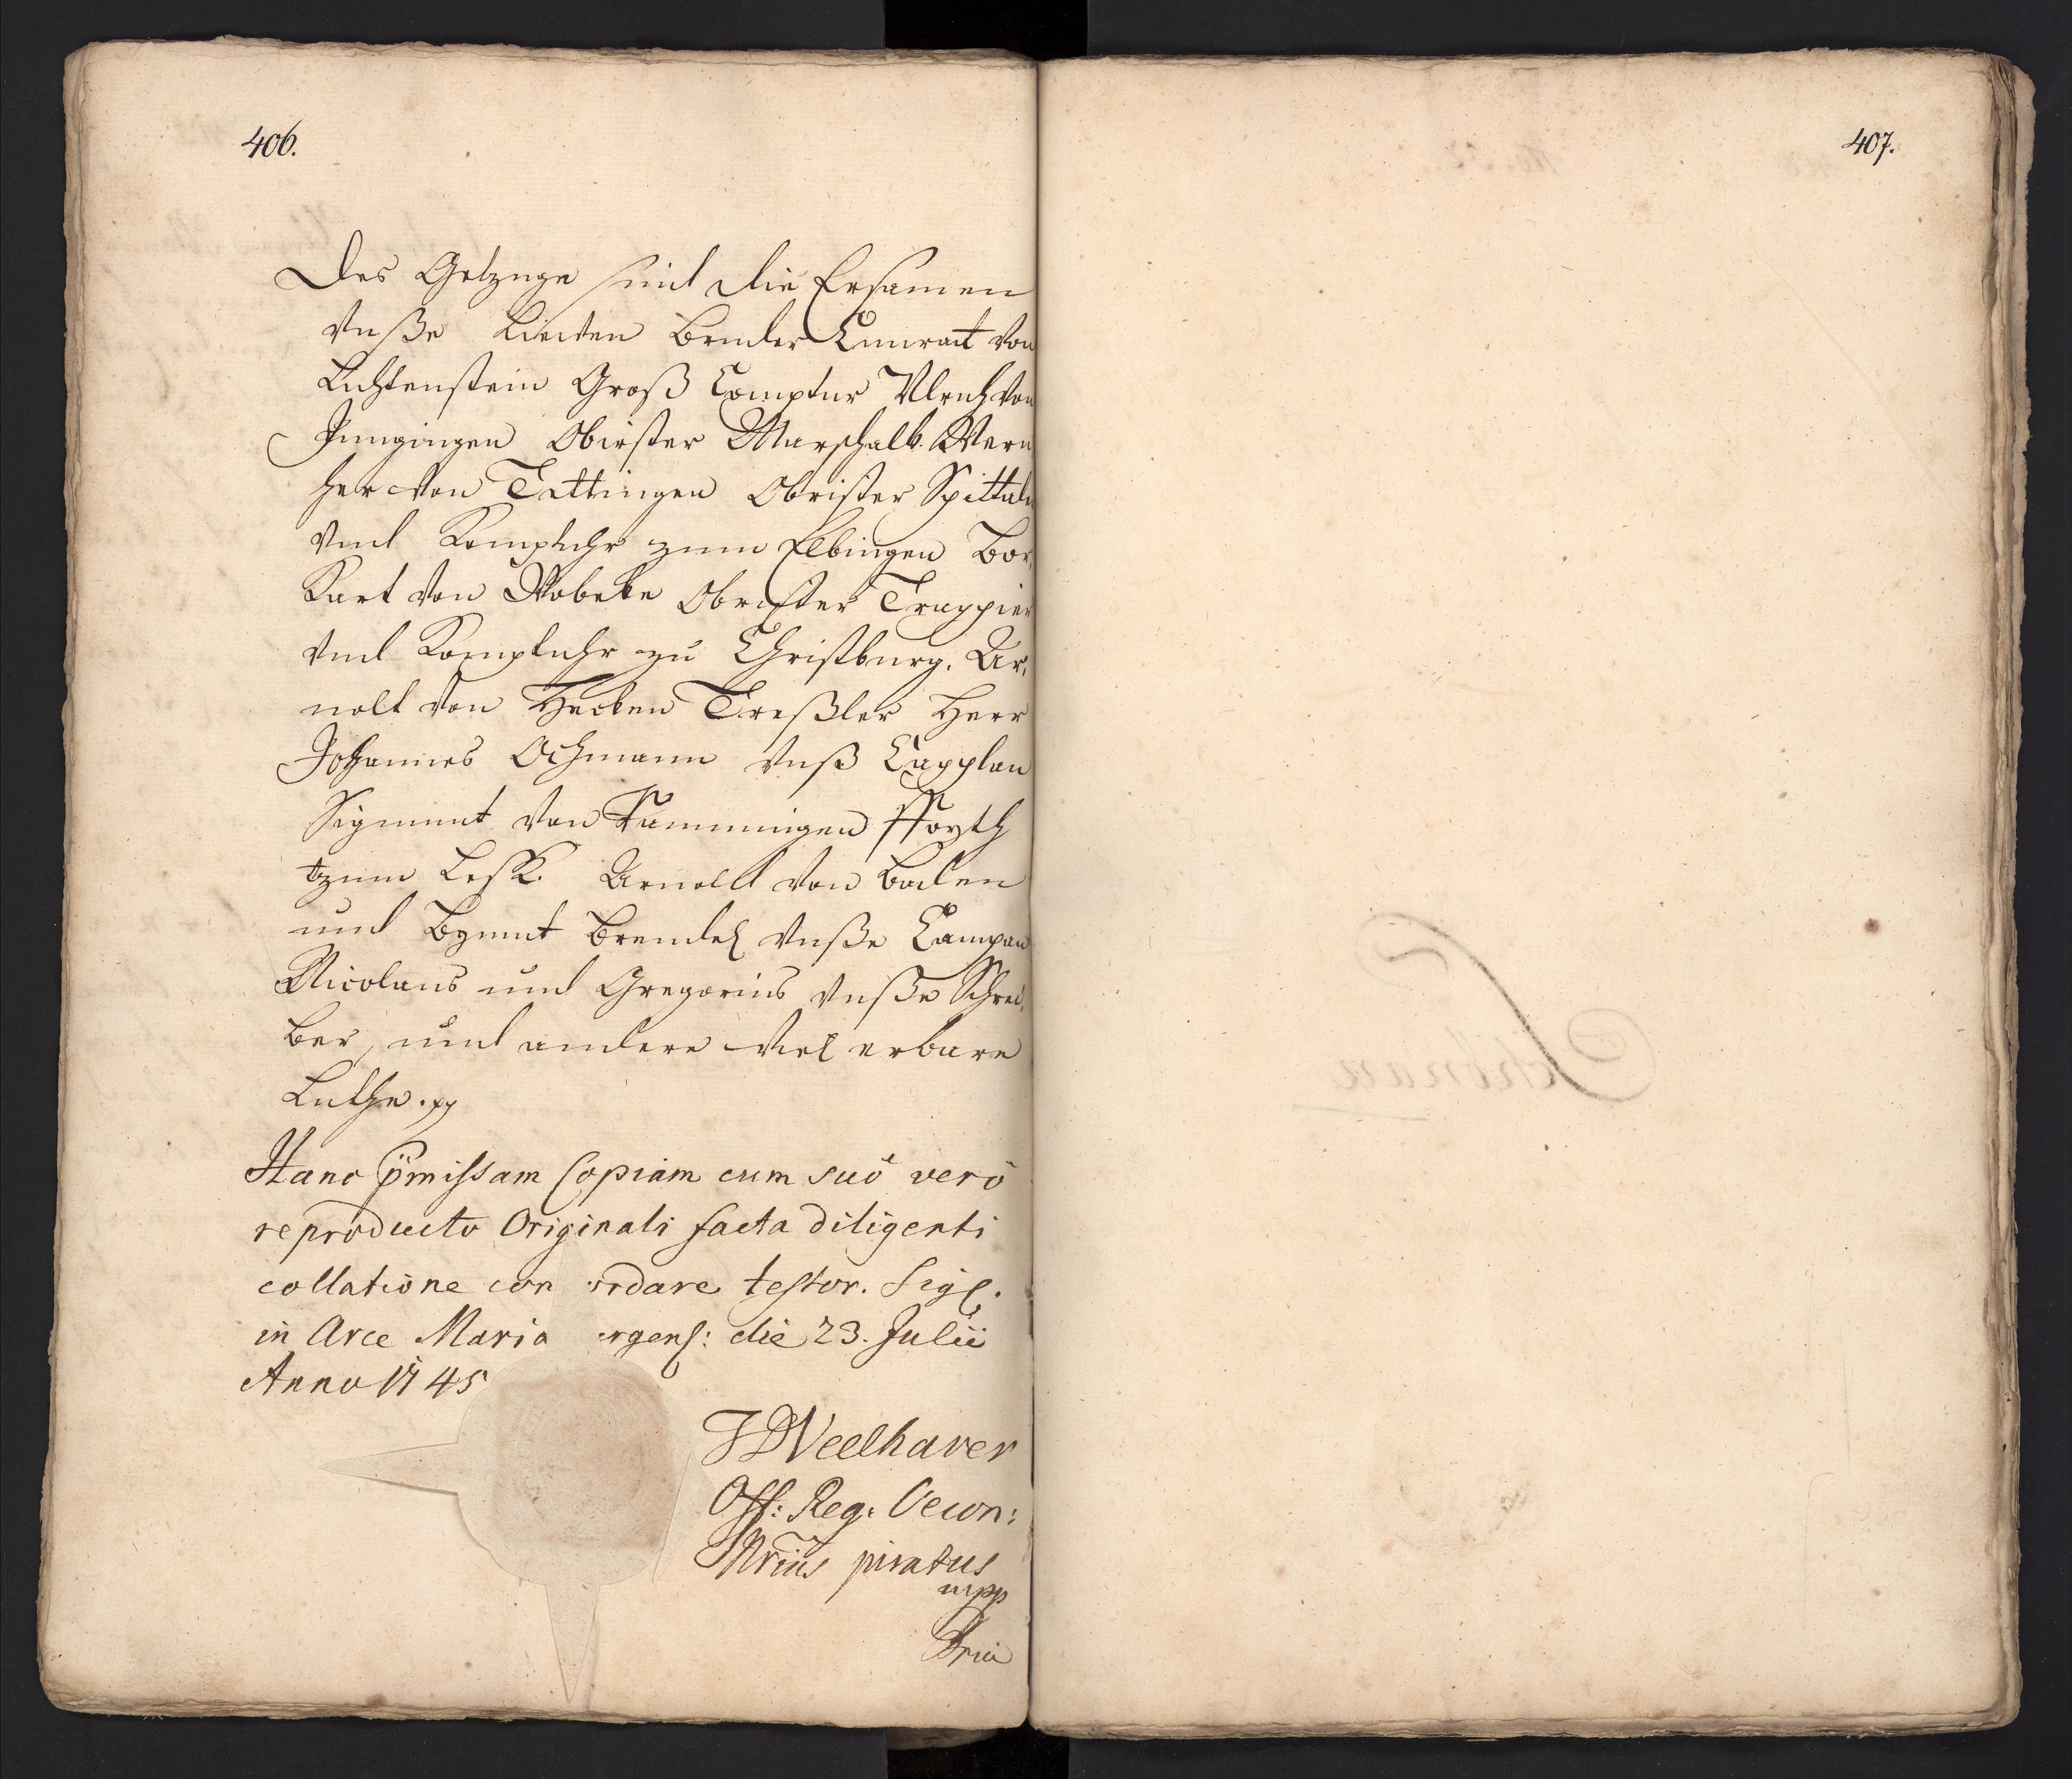 406.
Des Getzuge sind die Ersamen
Vnße Lieven Bruder Cunratt von
Lichtenstein Groß Comptur Vlrich von
Jungingen Obirster Marschalk. Wern
her von Tettingen Obrister Spittal
Vnd Kompthur zum Elbingen Bor,
Kart von Wobeke Obrister Trappier
Vnd Kompthur zu Christburg. Ar,
nolt von Hecken Treßler Herr
Johannes Ochmann Vnß Capplan
Sigmunt von Rammingen ffoyth
tzum Leßk. Arnollt von Baden
und Bymut Brendel Vnße Campan
Nicolaus und Gregorius Vnße Schrei,
ber, und andere viel erbare
Luthe.
Hanc pmissam Copiam cum suo vero
reproducto Originali facta diligenti
collatione con ordare testor. Sigl.
in Arce Maria ergens: die 23. Julii
Anno 1745
Off: Reg: Oecon:
Ntrius juratus
mpp
407.
Schönau